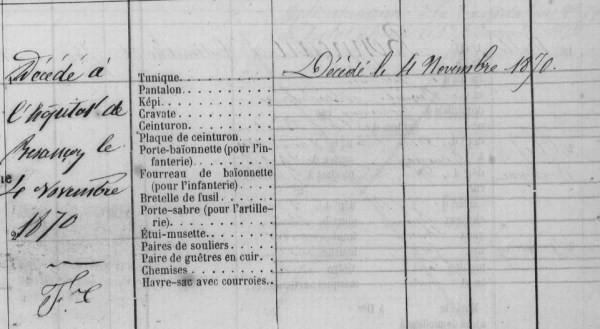 Décédé à
l'hôpital de
Besançon le
4 Novembre
1870
Tunique. . . . . . . . . . .
Pantalon. . . . . . . . . .
Képi. . . . . . . . . . . .
Cravate. . . . . . . . . .
Ceinturon. . . . . . . . .
Plaque de ceinturon. . . .
Porte-baïonnette (pour l'in-
fanterie). . . . . . . . .
Fourreau de baïonnette
(pour l'infanterie). . . .
Bretelle de fusil. . . . .
Porte-sabre (pour l'artille-
rie). . . . . . . . . . . .
Étui-musette. . . . . . .
Paires de souliers. . . . .
Paire de guêtres en cuir. .
Chemises. . . . . . . . . .
Havre-sac avec courroies. .
Décédé le 4 Novembre 1870.